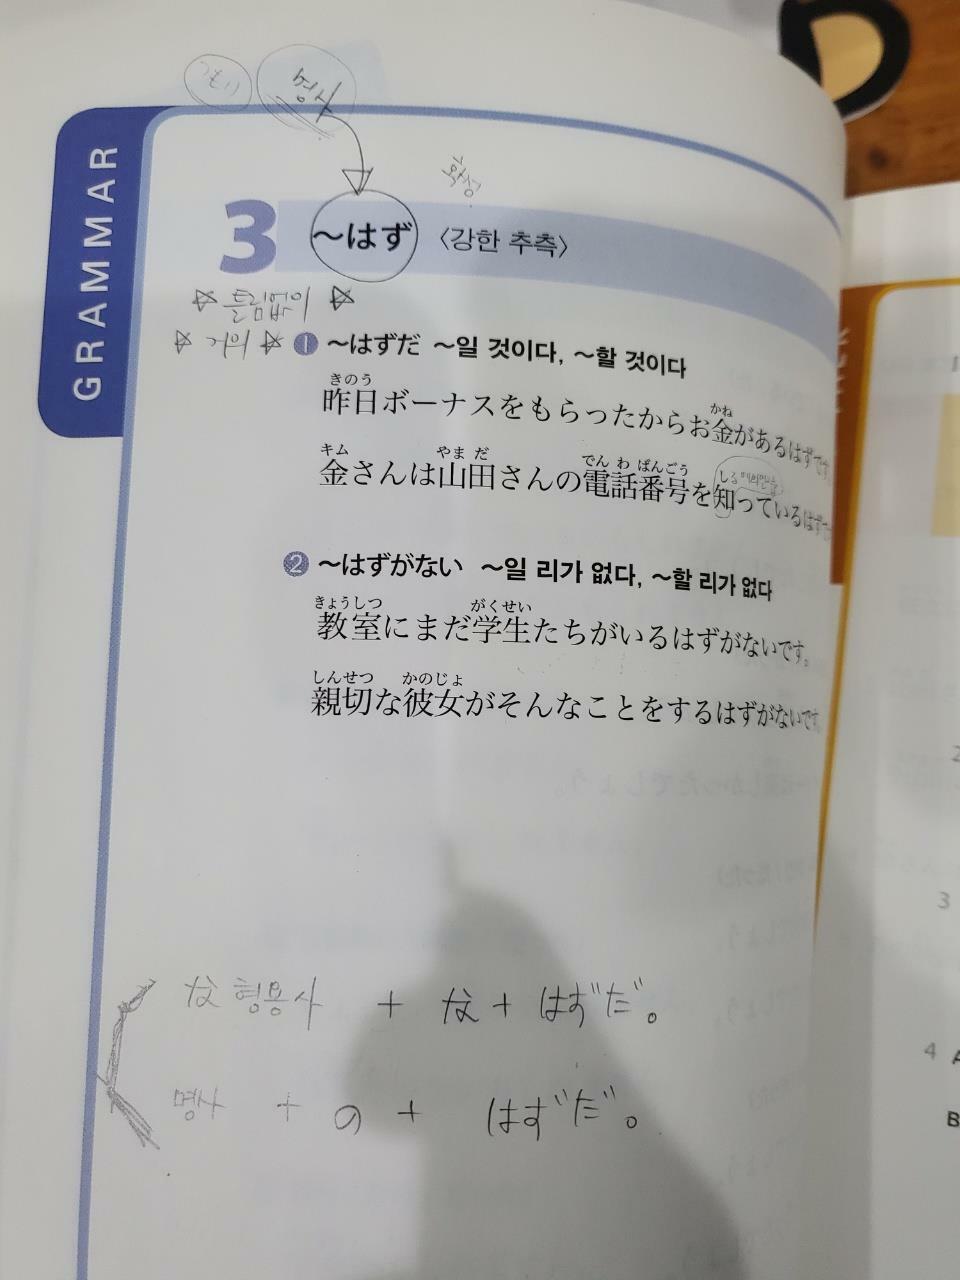 つもり 명사
확정
GRAMMAR
3 ～はず 〈강한 추측〉
☆ 틀림없이 ☆
☆ 거의 ☆
❶ ～はずだ ～일 것이다, ～할 것이다
きのう かね
昨日ボーナスをもらったからお金があるはずです。
キム やまだ でんわばんごう しる
金さんは山田さんの電話番号を知っているはずで
❷ ～はずがない ～일 리가 없다, ～할 리가 없다
きょうしつ がくせい
教室にまだ学生たちがいるはずがないです。
しんせつ かのじょ
親切な彼女がそんなことをするはずがないです。
な형용사 + な + はずだ。
명사 + の + はずだ。
3
4 A
B